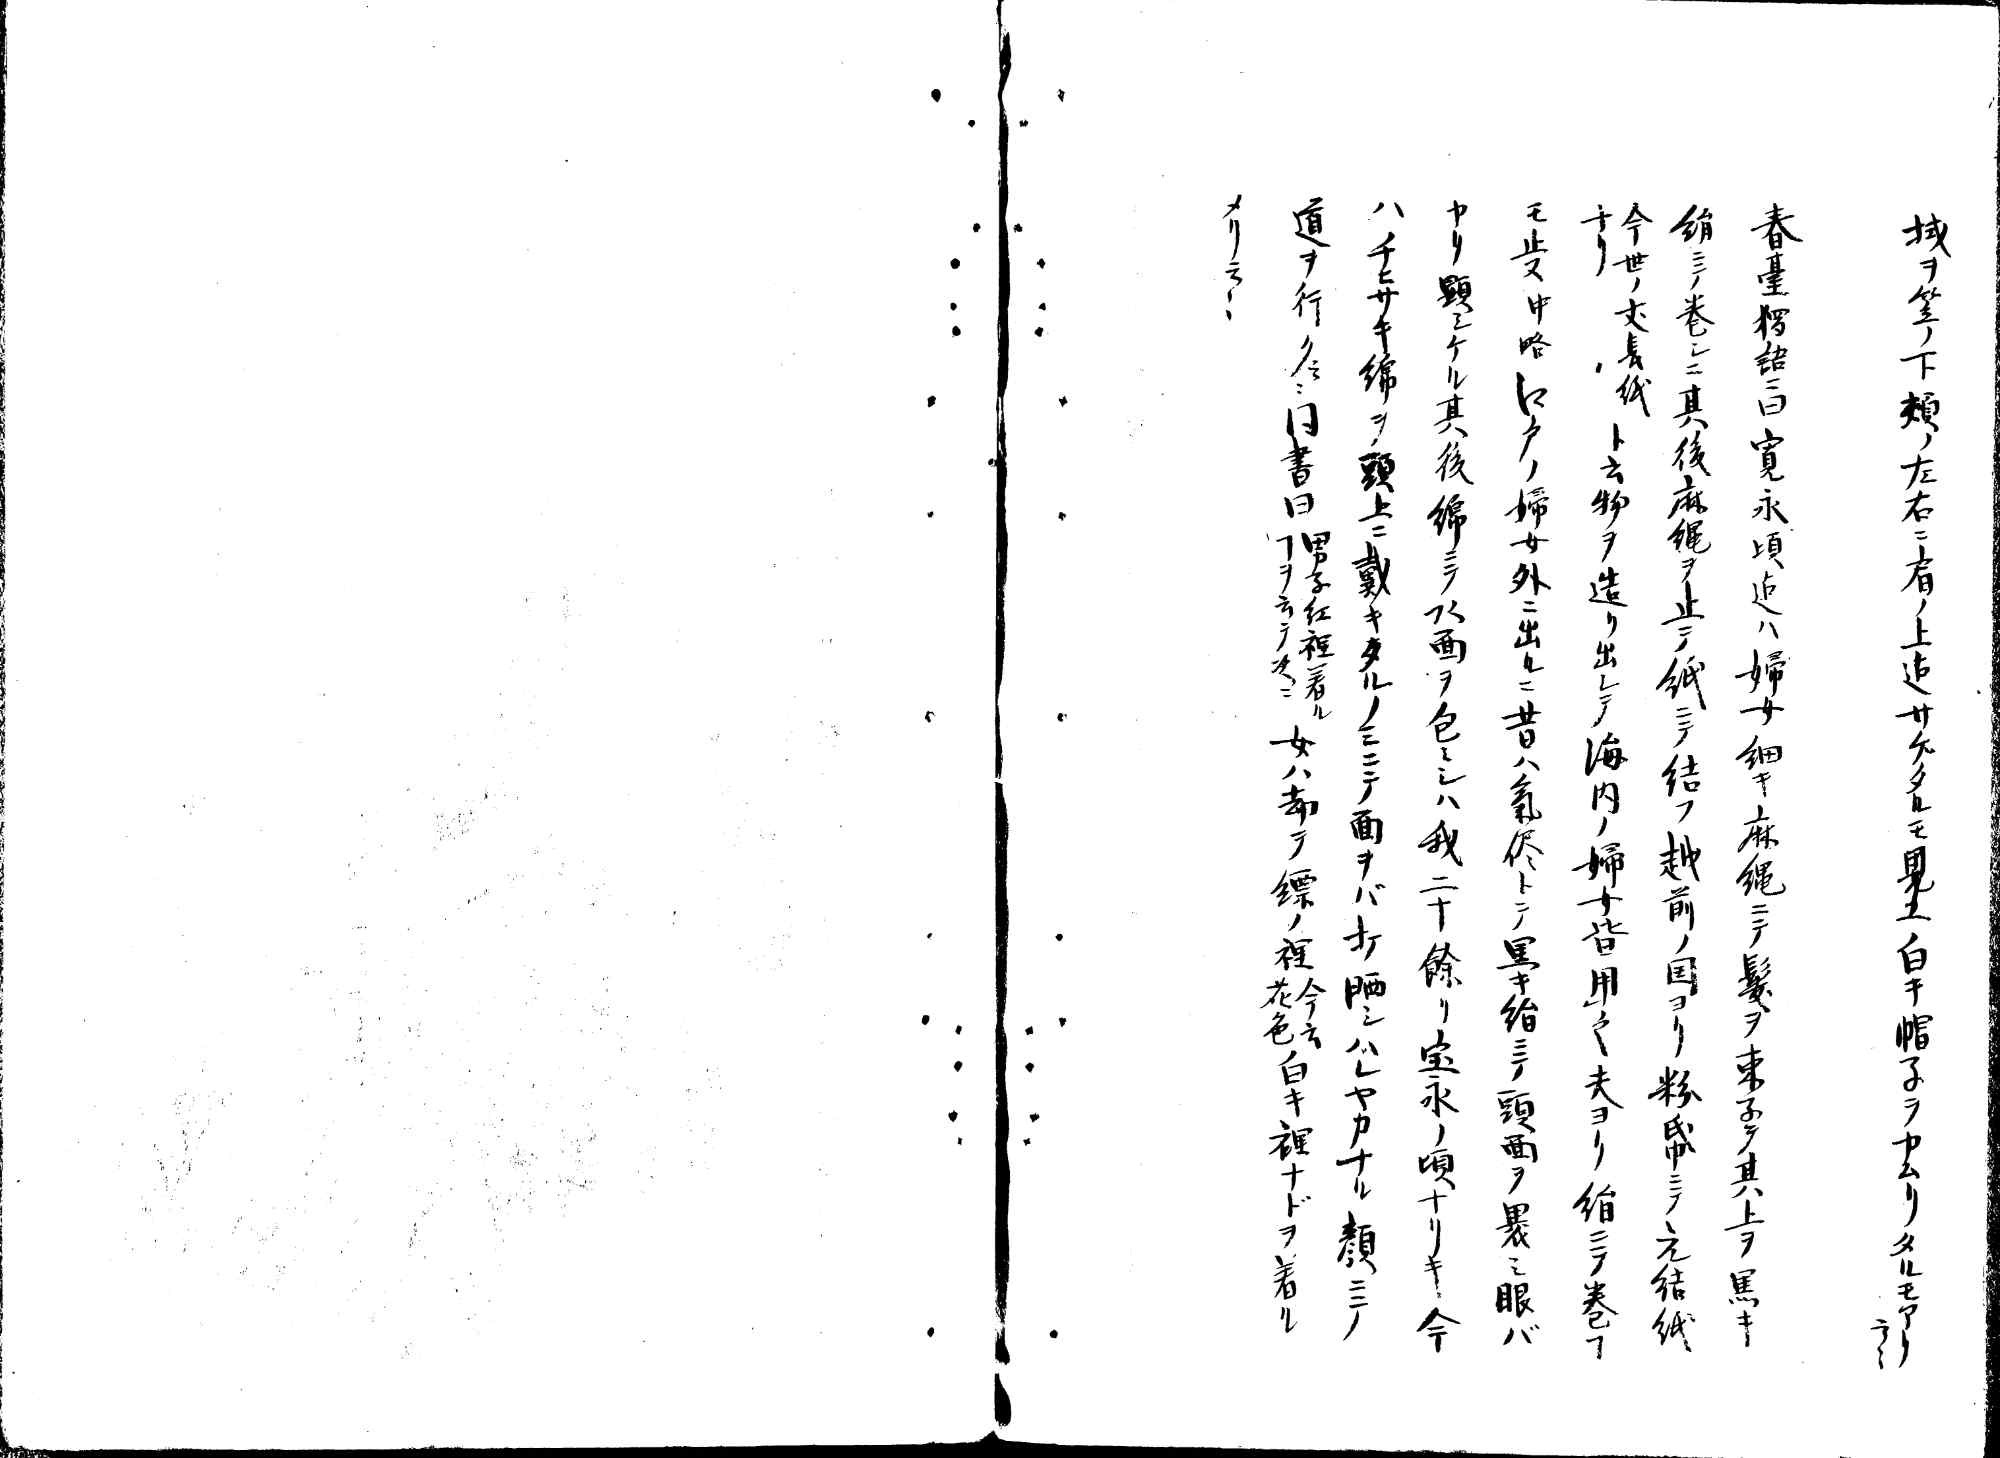 或ヲ笠ノ下頬ノ左右ニ肩ノ上迄サゲタルモ見エ白キ帽子ヲカムリタルモアリ云々
春臺獨語ニ曰寛永頃迄ハ婦女細キ麻縄ニテ髪ヲ束子テ其上ヲ黒キ
絹ニテ巻シニ其後麻縄ヲ止テ紙ニテ結フ越前ノ国ヨリ粉紙ニテ元結紙
今世ノ丈長紙
ナリ
ト云物ヲ造リ出シテ海内ノ婦女皆用之夫ヨリ絹ニテ巻フ
モ止ヌ中略江戸ノ婦女外ニ出ルニ昔ハ氣儘トテ黒キ絹ニテ頭面ヲ裹ミ眼バ
カリ顕シケル其後綿ニテ面ヲ包ミシハ我二十餘リ宝永ノ頃ナリキ今
ハチヒサキ綿ヲ頭上ニ戴キタルノミニテ面ヲバ打晒シハレヤカナル顔ニテ
道ヲ行ク云々同書曰
男子紅裡着ル
ヿヲ云テ次ニ
女ハ却テ縹ノ裡
今云
花色
白キ裡ナドヲ着ル
メリ云々